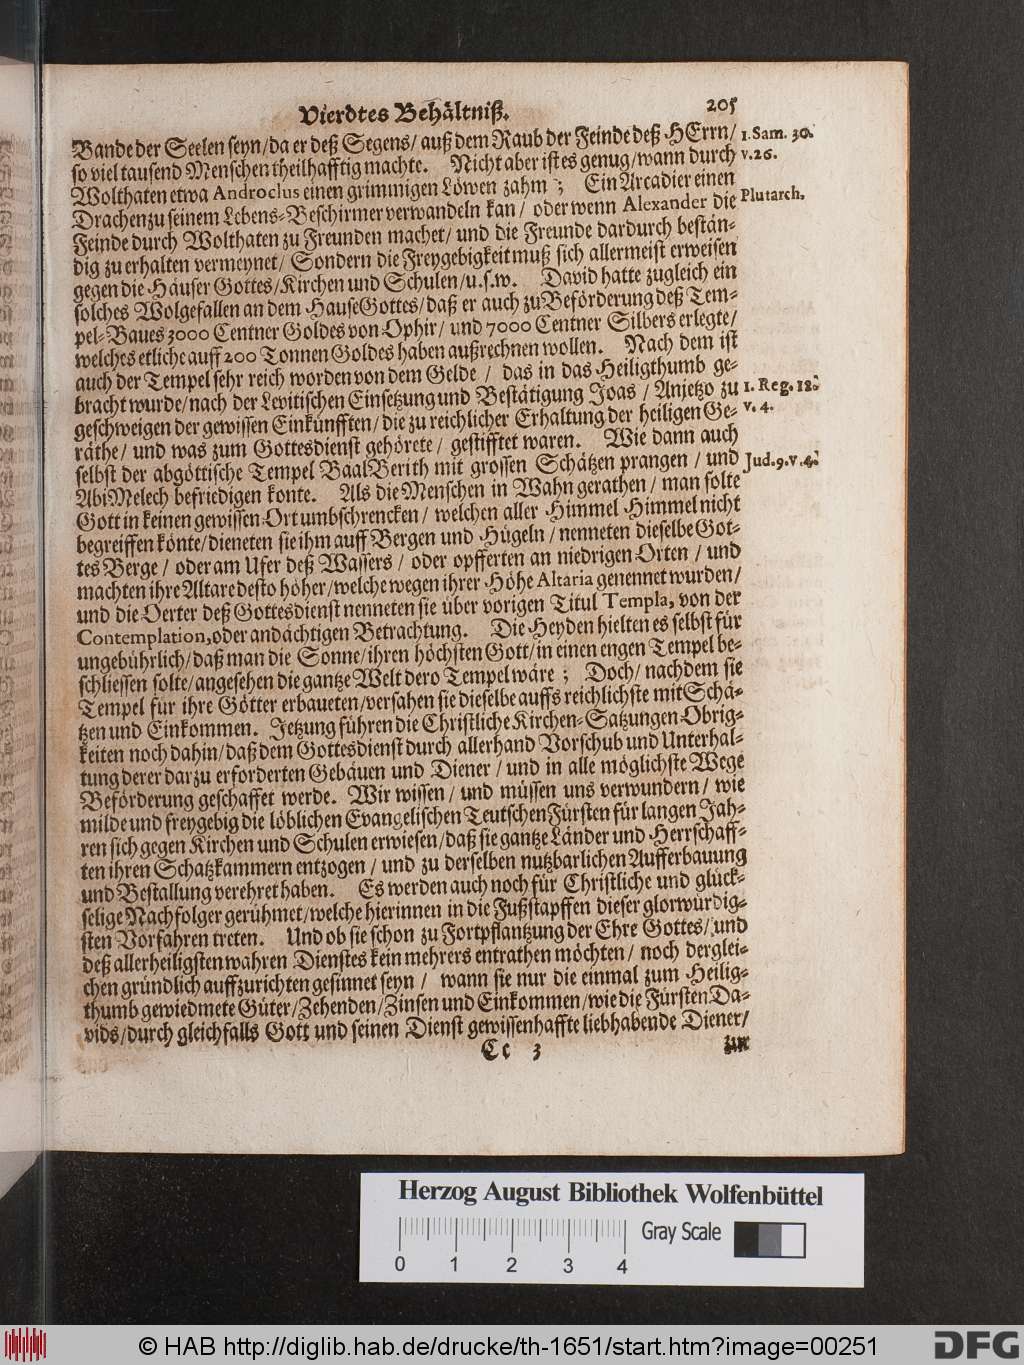 Vierdtes Behältniß. 205
Bande der Seelen seyn/da er deß Segens/ auß dem Raub der Feinde deß HErrn/ 1. Sam. 30.
so viel tausend Menschen theilhafftig machte. Nicht aber ist es genug/wann durch v. 26.
Wolthaten etwa Androclus einen grimmigen Löwen zahm ; Ein Arcadier einen
Drachen zu seinem Lebens-Beschirmer verwandeln kan/ oder wenn Alexander die Plutarch.
Feinde durch Wolthaten zu Freunden machet/ und die Freunde dardurch bestän-
dig zu erhalten vermeynet/ Sondern die Freygebigkeit muß sich allermeist erweisen
gegen die Häuser Gottes/Kirchen und Schulen/u.s.w. David hatte zugleich ein
solches Wolgefallen an dem Hause Gottes/daß er auch zu Beförderung deß Tem-
pel-Baues 3000 Centner Goldes von Ophir/ und 7000 Centner Silbers erlegte/
welches etliche auff 200 Tonnen Goldes haben außrechnen wollen. Nach dem ist
auch der Tempel sehr reich worden von dem Gelde / das in das Heiligthumb ge-
bracht wurde/nach der Levitischen Einsetzung und Bestätigung Joas / Anjetzo zu 1. Reg. 12.
geschweigen der gewissen Einkünfften/ die zu reichlicher Erhaltung der heiligen Ge- v. 4.
räthe/ und was zum Gottesdienst gehörete/ gestifftet waren. Wie dann auch
selbst der abgöttische Tempel BaalBerith mit grossen Schätzen prangen / und Jud. 9. v. 4.
AbiMelech befriedigen konte. Als die Menschen in Wahn gerathen/ man solte
Gott in keinen gewissen Ort umbschrencken/ welchen aller Himmel Himmel nicht
begreiffen könte/dieneten sie ihm auff Bergen und Hügeln / nenneten dieselbe Got-
tes Berge / oder am Ufer deß Wassers / oder opfferten an niedrigen Orten / und
machten ihre Altare desto höher/welche wegen ihrer Höhe Altaria genennet wurden/
und die Oerter deß Gottesdienst nenneten sie über vorigen Titul Templa, von der
Contemplation, oder andächtigen Betrachtung. Die Heyden hielten es selbst für
ungebührlich/daß man die Sonne/ihren höchsten Gott/in einen engen Tempel be-
schliessen solte/angesehen die gantze Welt dero Tempel wäre ; Doch/ nachdem sie
Tempel für ihre Götter erbaueten/versahen sie dieselbe auffs reichlichste mit Schä-
tzen und Einkommen. Jetzung führen die Christliche Kirchen-Satzungen Obrig-
keiten noch dahin/daß dem Gottesdienst durch allerhand Vorschub und Unterhal-
tung derer darzu erforderten Gebäuen und Diener / und in alle möglichste Wege
Beförderung geschaffet werde. Wir wissen / und müssen uns verwundern/ wie
milde und freygebig die löblichen Evangelischen Teutschen Fürsten für langen Jah-
ren sich gegen Kirchen und Schulen erwiesen/daß sie gantze Länder und Herrschaff-
ten ihren Schatzkammern entzogen / und zu derselben nutzbarlichen Aufferbauung
und Bestallung verehret haben. Es werden auch noch für Christliche und glück-
selige Nachfolger gerühmet/welche hierinnen in die Fußstapffen dieser glorwürdig-
sten Vorfahren treten. Und ob sie schon zu Fortpflantzung der Ehre Gottes/ und
deß allerheiligsten wahren Dienstes kein mehrers entrathen möchten/ noch derglei-
chen gründlich auffzurichten gesinnet seyn / wann sie nur die einmal zum Heilig-
thumb gewiedmete Güter/Zehenden/Zinsen und Einkommen/wie die Fürsten Da-
vids/durch gleichfalls Gott und seinen Dienst gewissenhaffte liebhabende Diener/
Cc 3 zur
Herzog August Bibliothek Wolfenbüttel
Gray Scale
0 1 2 3 4
© HAB http://diglib.hab.de/drucke/th-1651/start.htm?image=00251
DFG